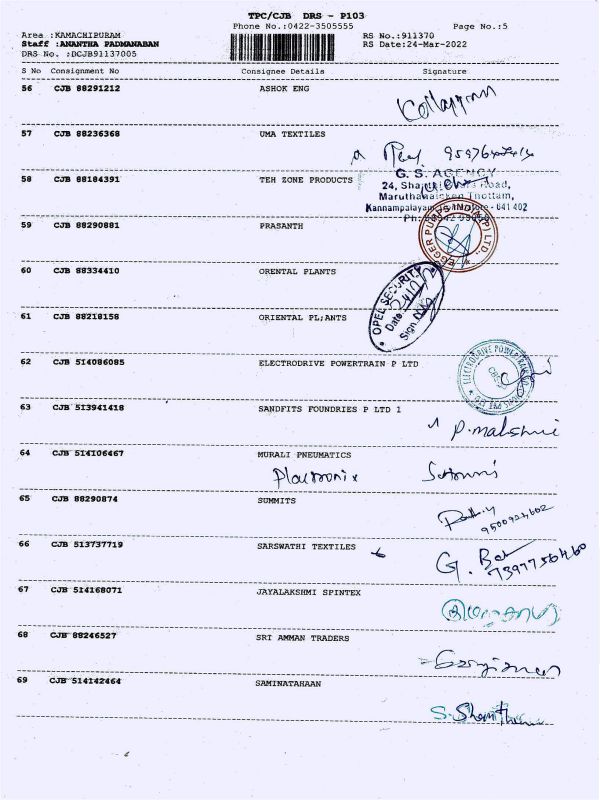 TPC/CJB DRS - P103
Phone No.:0422-3505555 Page No.:5
Area :KAMACHIPURAM RS No.:911370
Staff :ANANTHA PADMANABAN RS Date:24-Mar-2022
DRS No. :DCJB91137005
S No Consignment No Consignee Details Signature
56 CJB 88291212 ASHOK ENG
57 CJB 88236368 UMA TEXTILES
58 CJB 88184391 TEH ZONE PRODUCTS
G. S. AGENCY
24, Road,
Maruthanaicken Thottam,
Kannampalayam 641 402
59 CJB 88290881 PRASANTH
EGGER PUMPS INDIA (P) LTD.,
60 CJB 88334410 ORENTAL PLANTS
OPEL SECURITY
Date
Sign
61 CJB 88218158 ORIENTAL PL;ANTS
62 CJB 514086085 ELECTRODRIVE POWERTRAIN P LTD
ELECTRODRIVE POWERTRAIN
63 CJB 513941418 SANDFITS FOUNDRIES P LTD 1
64 CJB 514106467 MURALI PNEUMATICS
65 CJB 88290874 SUMMITS
66 CJB 513737719 SARSWATHI TEXTILES
7397756460
67 CJB 514168071 JAYALAKSHMI SPINTEX
68 CJB 88246527 SRI AMMAN TRADERS
69 CJB 514142464 SAMINATAHAAN